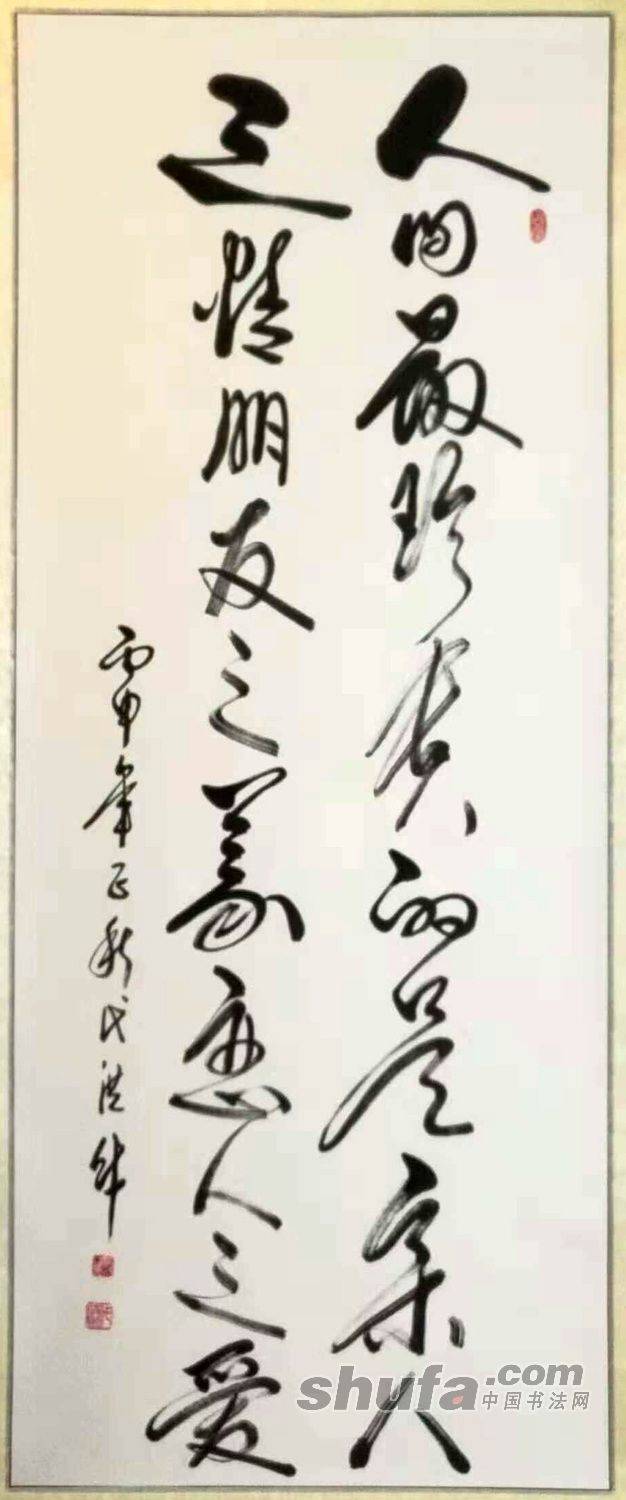 人间最珍贵的是亲人
之情朋友之義恋人之爱
丙申年正秋代洪
shufa.com
中国书法网